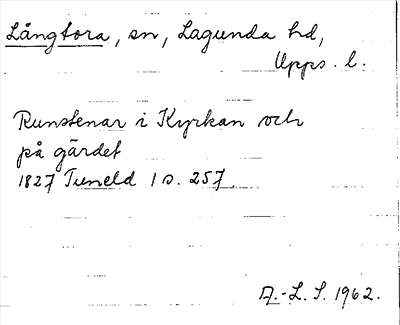 Långtora, sn, Lagunda hd,
Upps. l.
Runstenar i Kyrkan och
på gärdet
1827 Tuneld I s. 257.
A.-L. S. 1962.